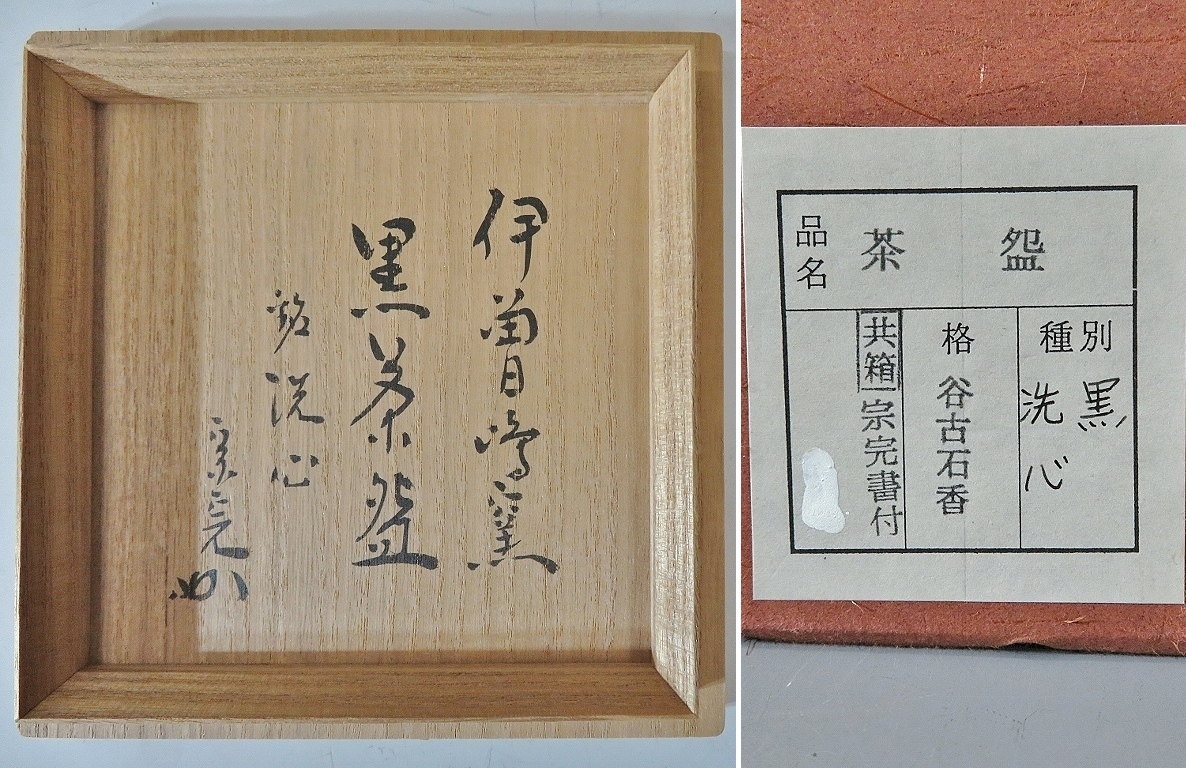 伊曽日嶋窯
黒茶盌
銘洗心
宗完
品名
茶盌
種別
黒
洗心
格
谷古石香
共箱
宗完書付